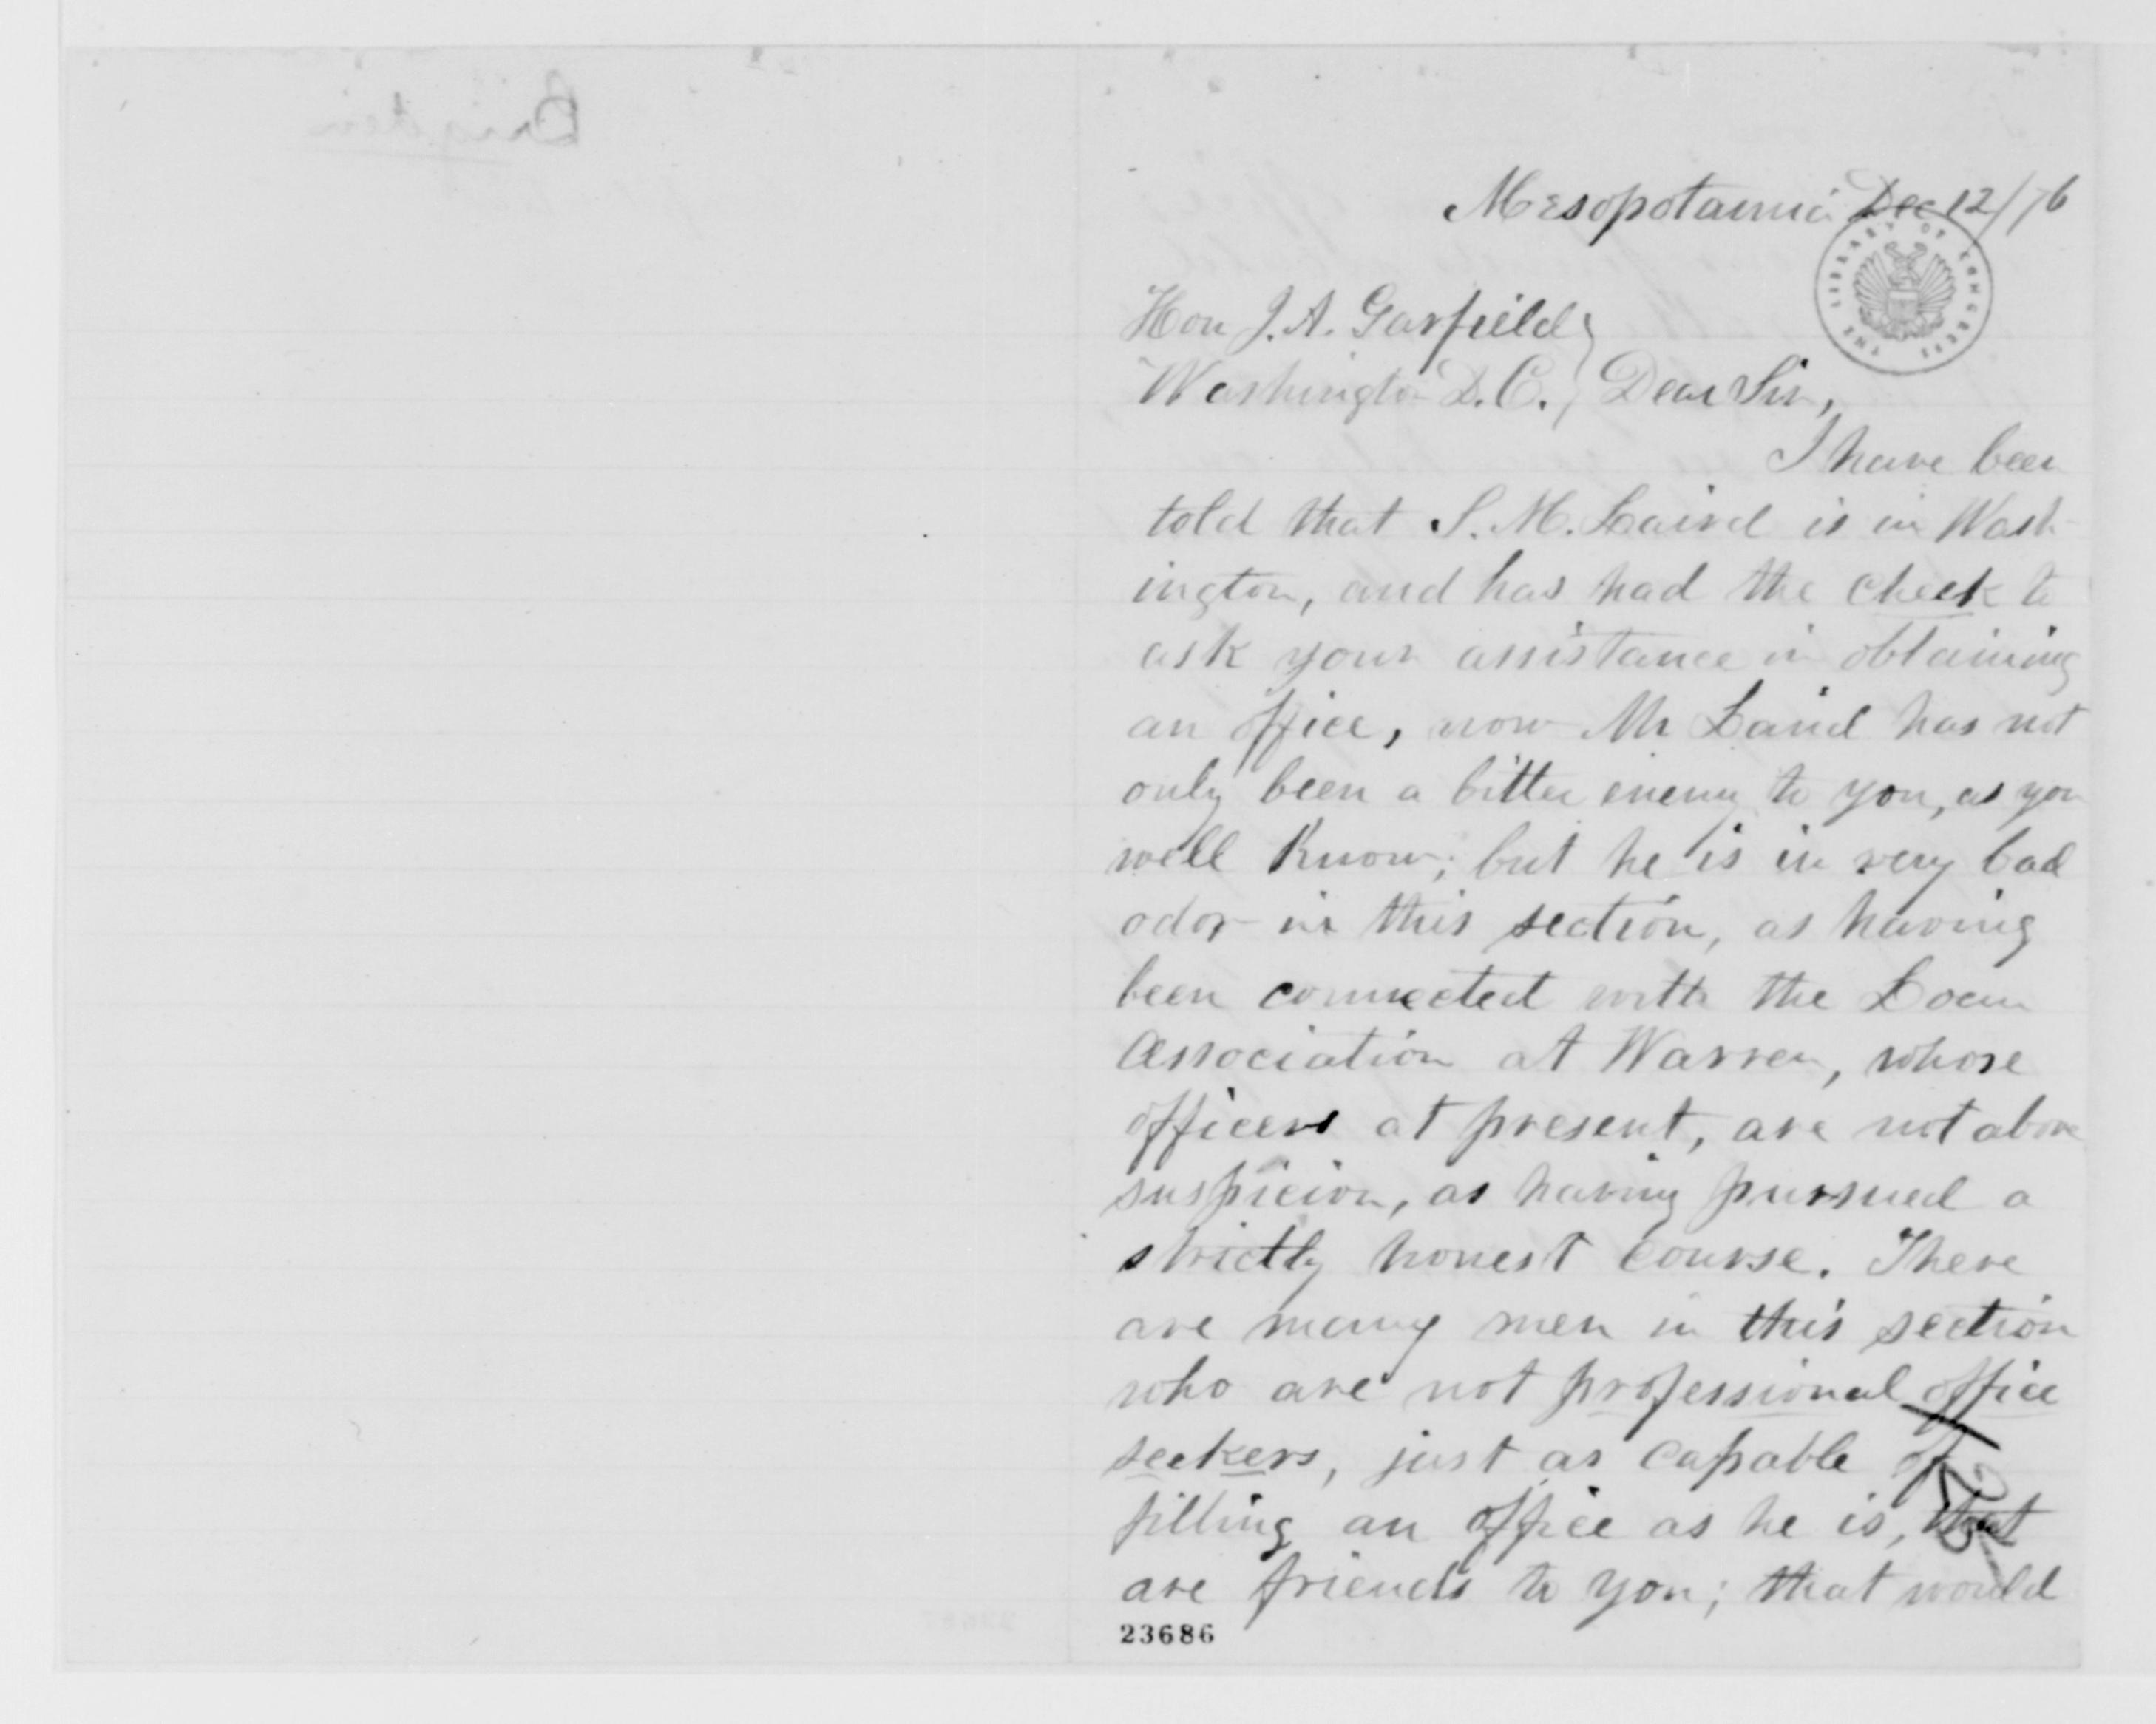 Mesopotamia Dec 12/76
THE LIBRARY OF CONGRESS
Hon J. A. Garfield
Washington D.C., Dear Sir,
I have been
told that S. M. Laird is in Wash
ington, and has had the cheek to
ask your assistance in obtaining
an office, now Mr Laird has not
only been a bitter enemy to you, as you
well know; but he is in very bad
odor in this section, as having
been connected with the Loan
Association at Warren, whose
officers at present, are not above
suspicion, as having pursued a
strictly honest course. There
are many men in this section
who are not professional office
seekers, just as capable of
filling an office as he is, that
are friends to you; that would
23686